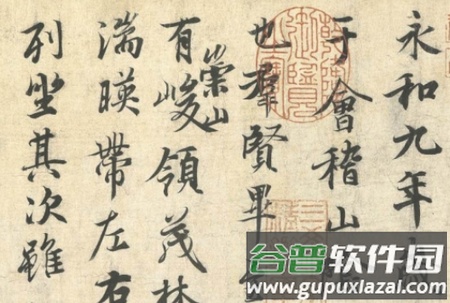 永和九年
于會稽山
也羣賢畢
有崇山峻領茂林
湍暎帶左右
列坐其次雖
谷普软件园
www.gupuxlazal.com